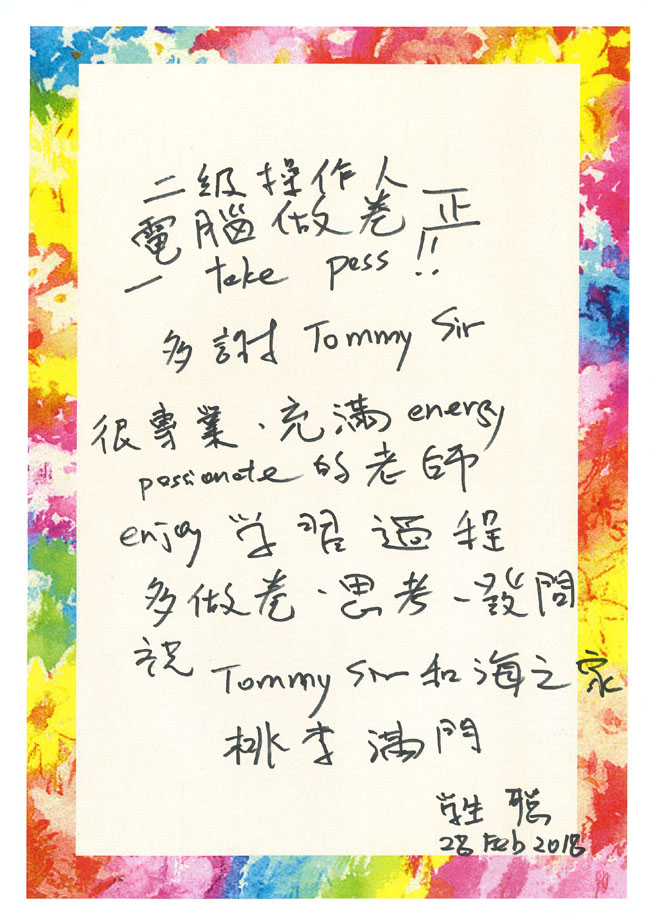 二級操作人
電腦做卷 正
一 take pass !!
多謝 Tommy Sir
很專業、充滿 energy
passionate 的老師
enjoy 学習過程
多做卷、思考、發問
祝 Tommy Sir 和海之家
桃李滿門
学生 聪
28 Feb 2018